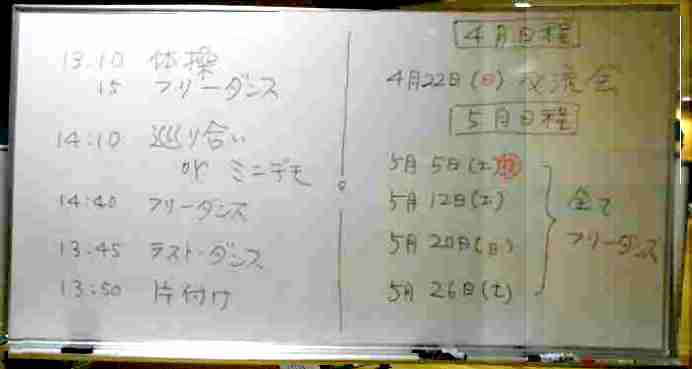 13:10 体操
15 フリーダンス
14:10 巡り合い
or ミニデモ
14:40 フリーダンス
13:45 ラスト・ダンス
13:50 片付け
4月日程
4月22日(日) 交流会
5月日程
5月 5日(土)祝
5月 12日(土)
5月 20日(日)
5月 26日(土)
全て
フリーダンス